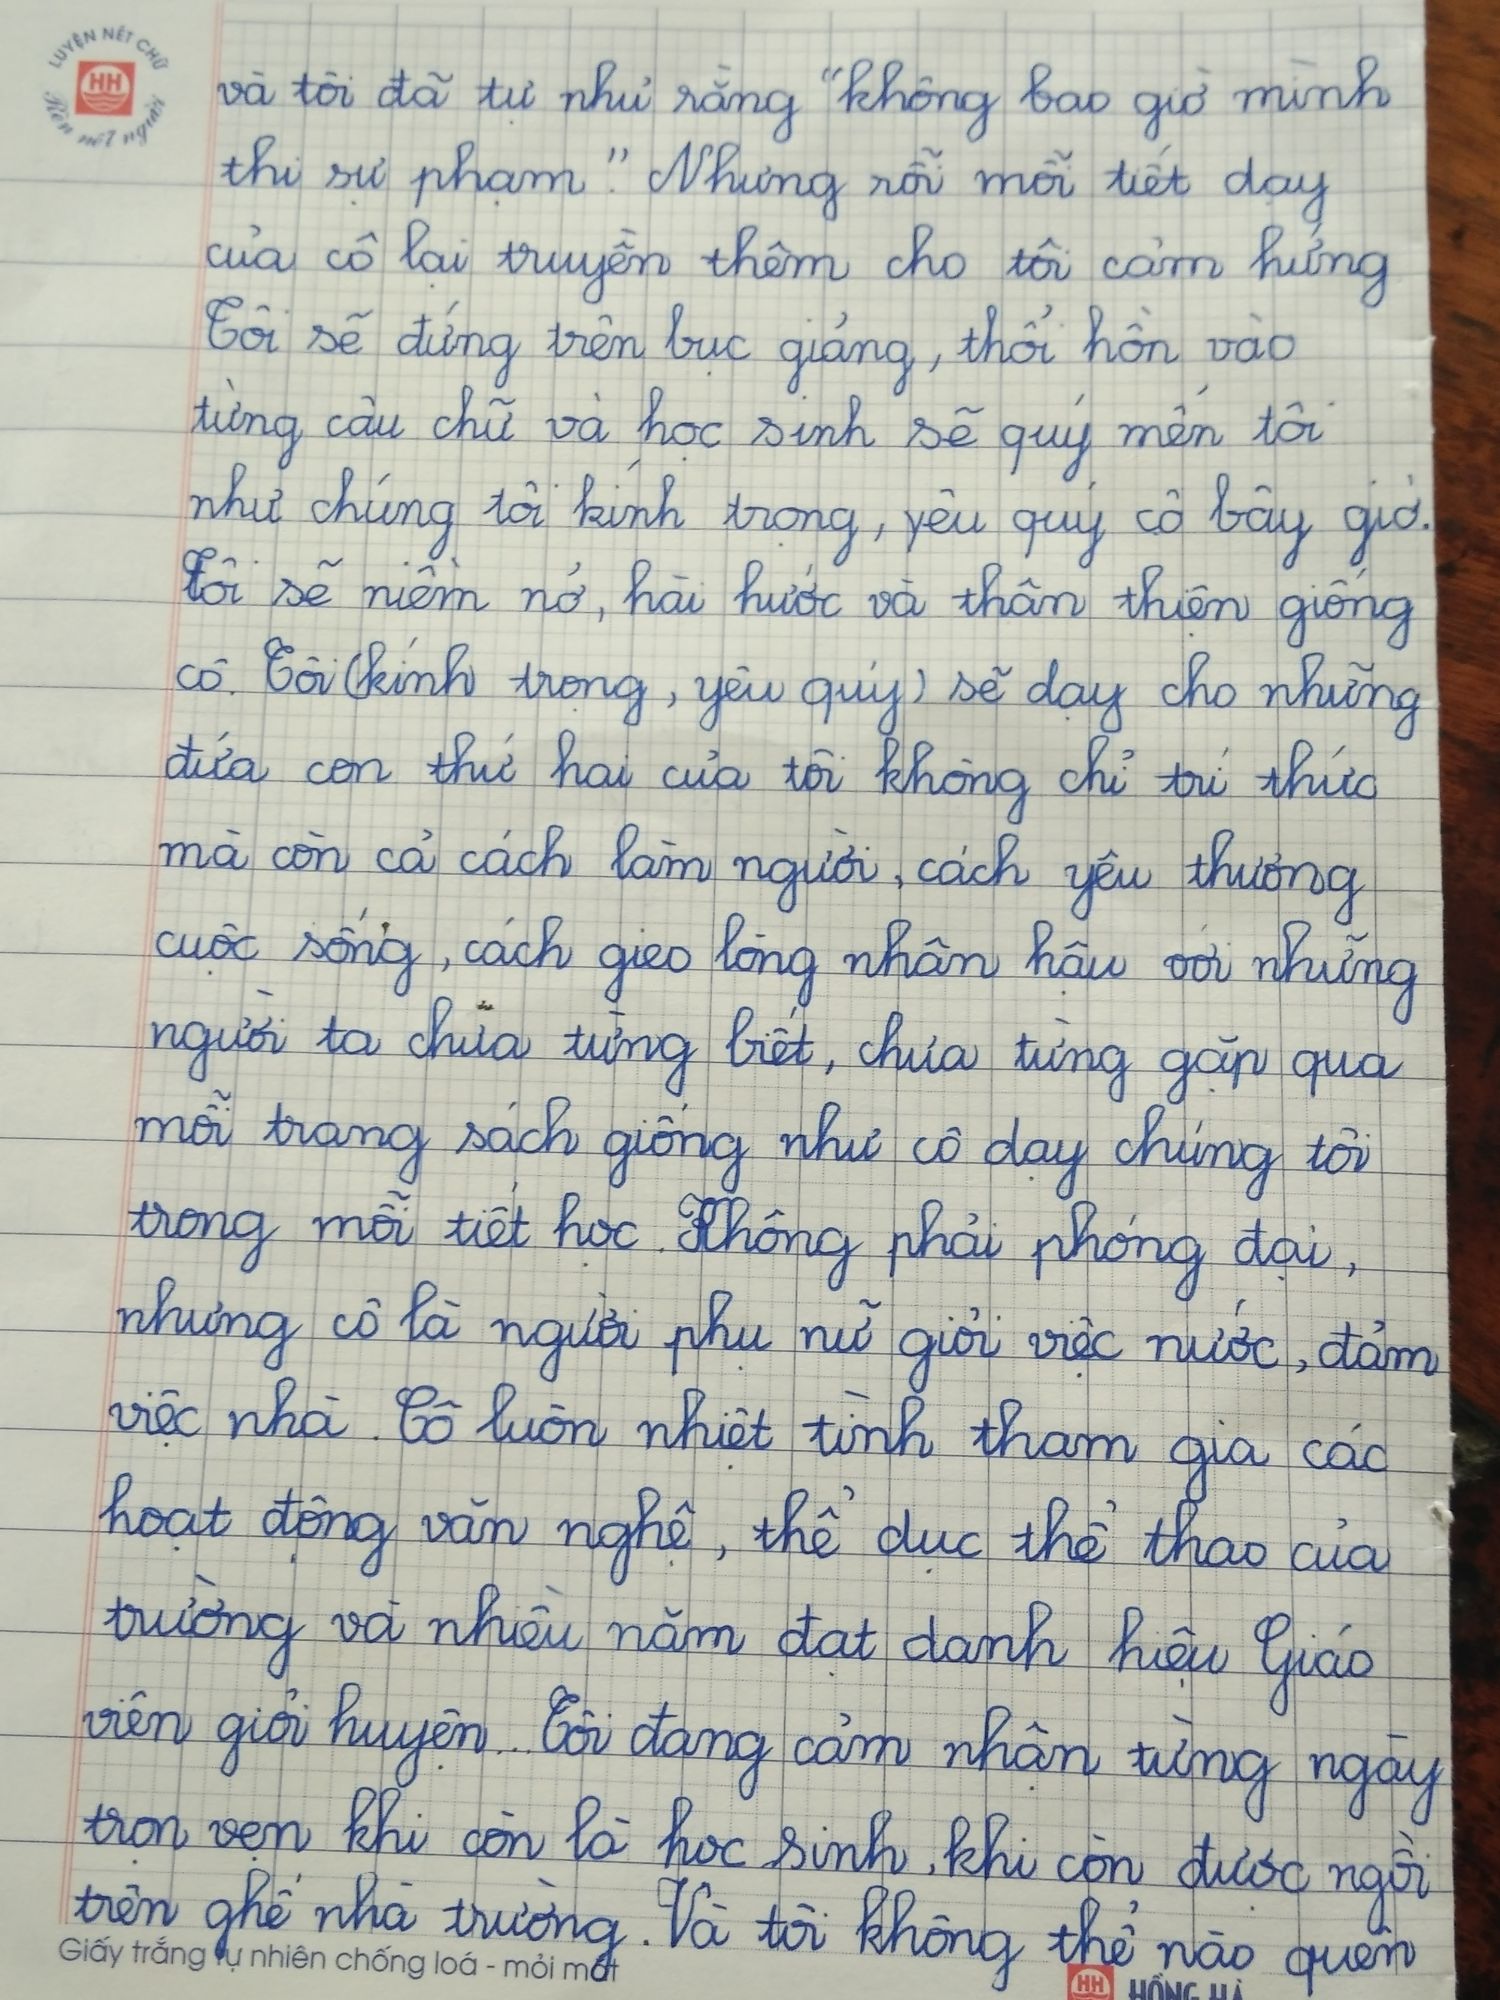 LUYỆN NÉT CHỮ
HH
Rèn nết người
và tôi đã tự nhủ rằng "không bao giờ mình
thi sư phạm". Nhưng rồi mỗi tiết dạy
của cô lại truyền thêm cho tôi cảm hứng
Tôi sẽ đứng trên bục giảng, thổi hồn vào
từng câu chữ và học sinh sẽ quý mến tôi
như chúng tôi kính trọng, yêu quý cô bây giờ.
Tôi sẽ niềm nở, hài hước và thân thiện giống
cô. Tôi (kính trọng, yêu quý) sẽ dạy cho những
đứa con thứ hai của tôi không chỉ tri thức
mà còn cả cách làm người, cách yêu thương
cuộc sống, cách gieo lòng nhân hậu với những
người ta chưa từng biết, chưa từng gặp qua
mỗi trang sách giống như cô dạy chúng tôi
trong mỗi tiết học. Không phải phóng đại,
nhưng cô là người phụ nữ giỏi việc nước, đảm
việc nhà. Cô luôn nhiệt tình tham gia các
hoạt động văn nghệ, thể dục thể thao của
trường và nhiều năm đạt danh hiệu Giáo
viên giỏi huyện... Tôi đang cảm nhận từng ngày
trọn vẹn khi còn là học sinh, khi còn được ngồi
trên ghế nhà trường. Và tôi không thể nào quên
Giấy trắng tự nhiên chống loá - mỏi mắt
HH HỒNG HÀ